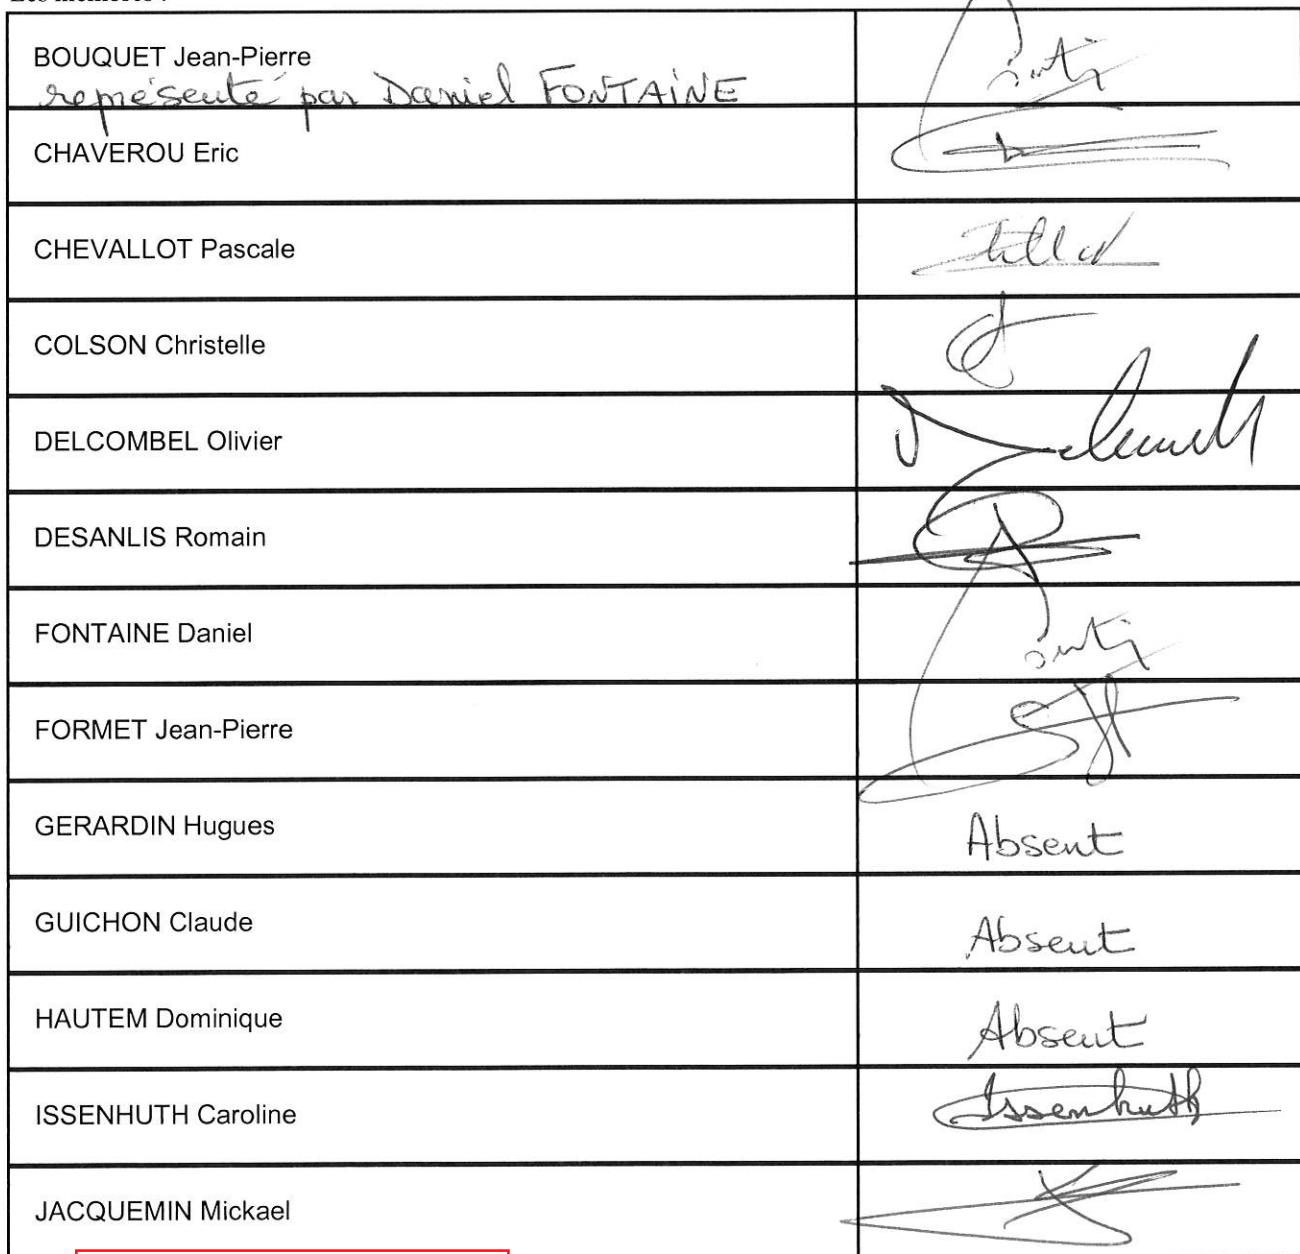 Les membres :
BOUQUET Jean-Pierre
représenté par Daniel FONTAINE
CHAVEROU Eric
CHEVALLOT Pascale
COLSON Christelle
DELCOMBEL Olivier
DESANLIS Romain
FONTAINE Daniel
FORMET Jean-Pierre
GERARDIN Hugues
Absent
GUICHON Claude
Absent
HAUTEM Dominique
Absent
ISSENHUTH Caroline
Issenhuth
JACQUEMIN Mickael